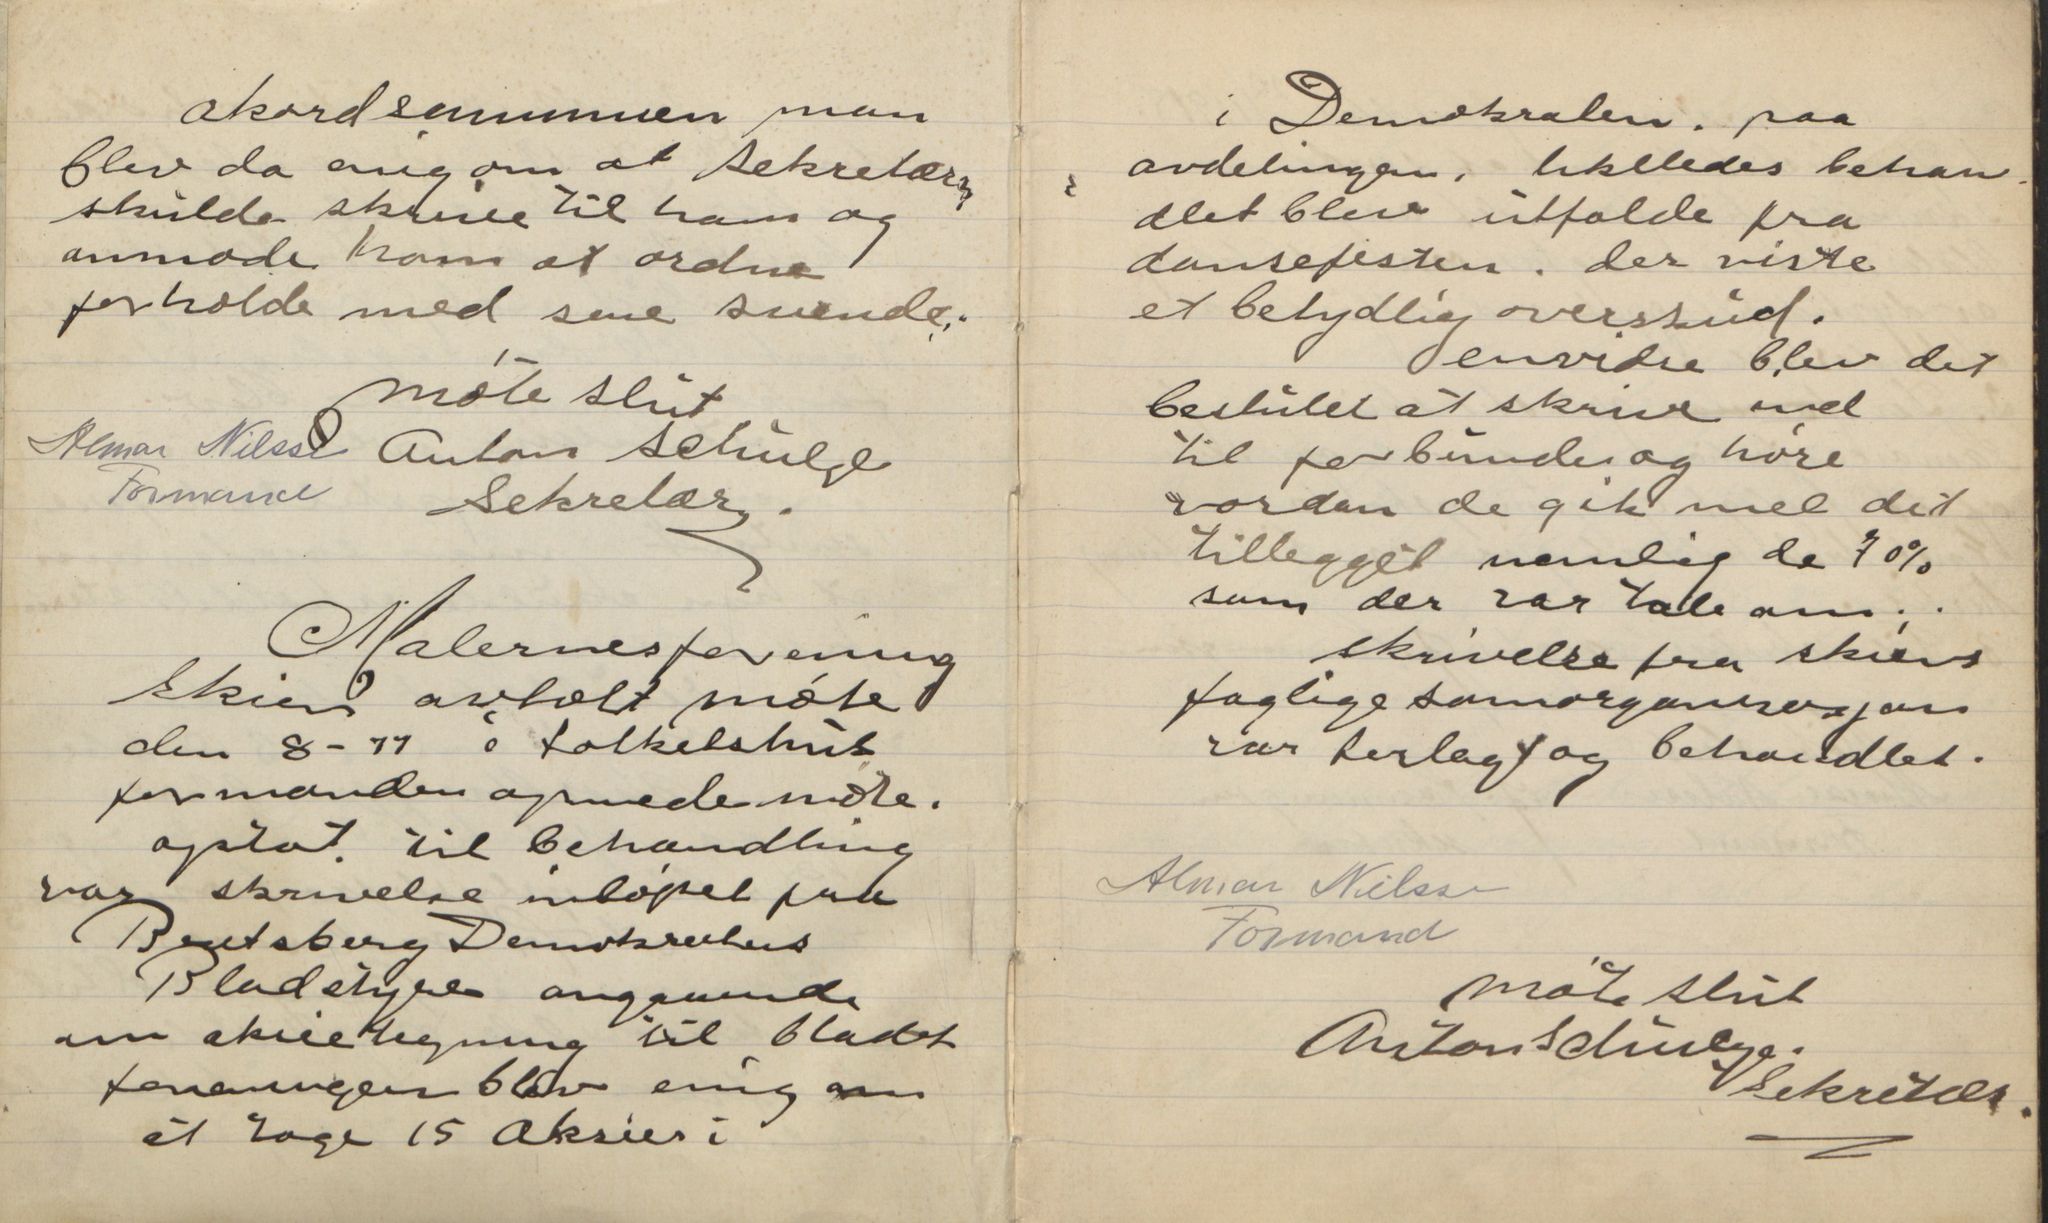 akordsummen man
blev da enig om at Sekretæren
skulde skrive til ham og
anmode ham at ordne
forholde med sine svende.
möte slut
Almar Nilsse Anton Schulze
Formand Sekretær.
Malernes forening
Skien avholt möte
den 8-11 i Folkets hus
formanden opnede möte.
opstot til behandling
var skrivelse inlöpet fra
Bratsberg Demokratens
Bladstyre angaaende
om aksietegning til bladet
foreningen blev enig om
at tage 15 Aksier i
i Demokraten. paa
avdelingen. likeledes behan
dlet blev utfalde fra
dansefesten. der viste
et betydlig overskud.
envidre blev det
beslutet at skrive ned
til forbundet og höre
vordan de gik med det
tillegget nemlig de 70%
som der var tale om.
skrivelse fra skiens
faglige samorganisasjon
var forlagt og behandlet.
Almar Nilsse
Formand
möte slut
Anton Schulze.
Sekretær.